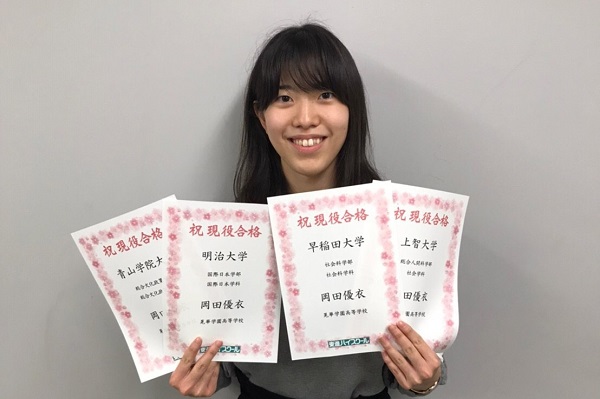 祝 現役合格
青山学院大
総合文化政
総合文化政
岡
祝 現役合格
明治大学
国際日本学部
国際日本学科
岡田優衣
祝 現役合格
早稲田大学
社会科学部
社会科学科
岡田優衣
東進ハイスクール
祝 現役合格
上智大学
総合人間科学部
社会学科
田優衣